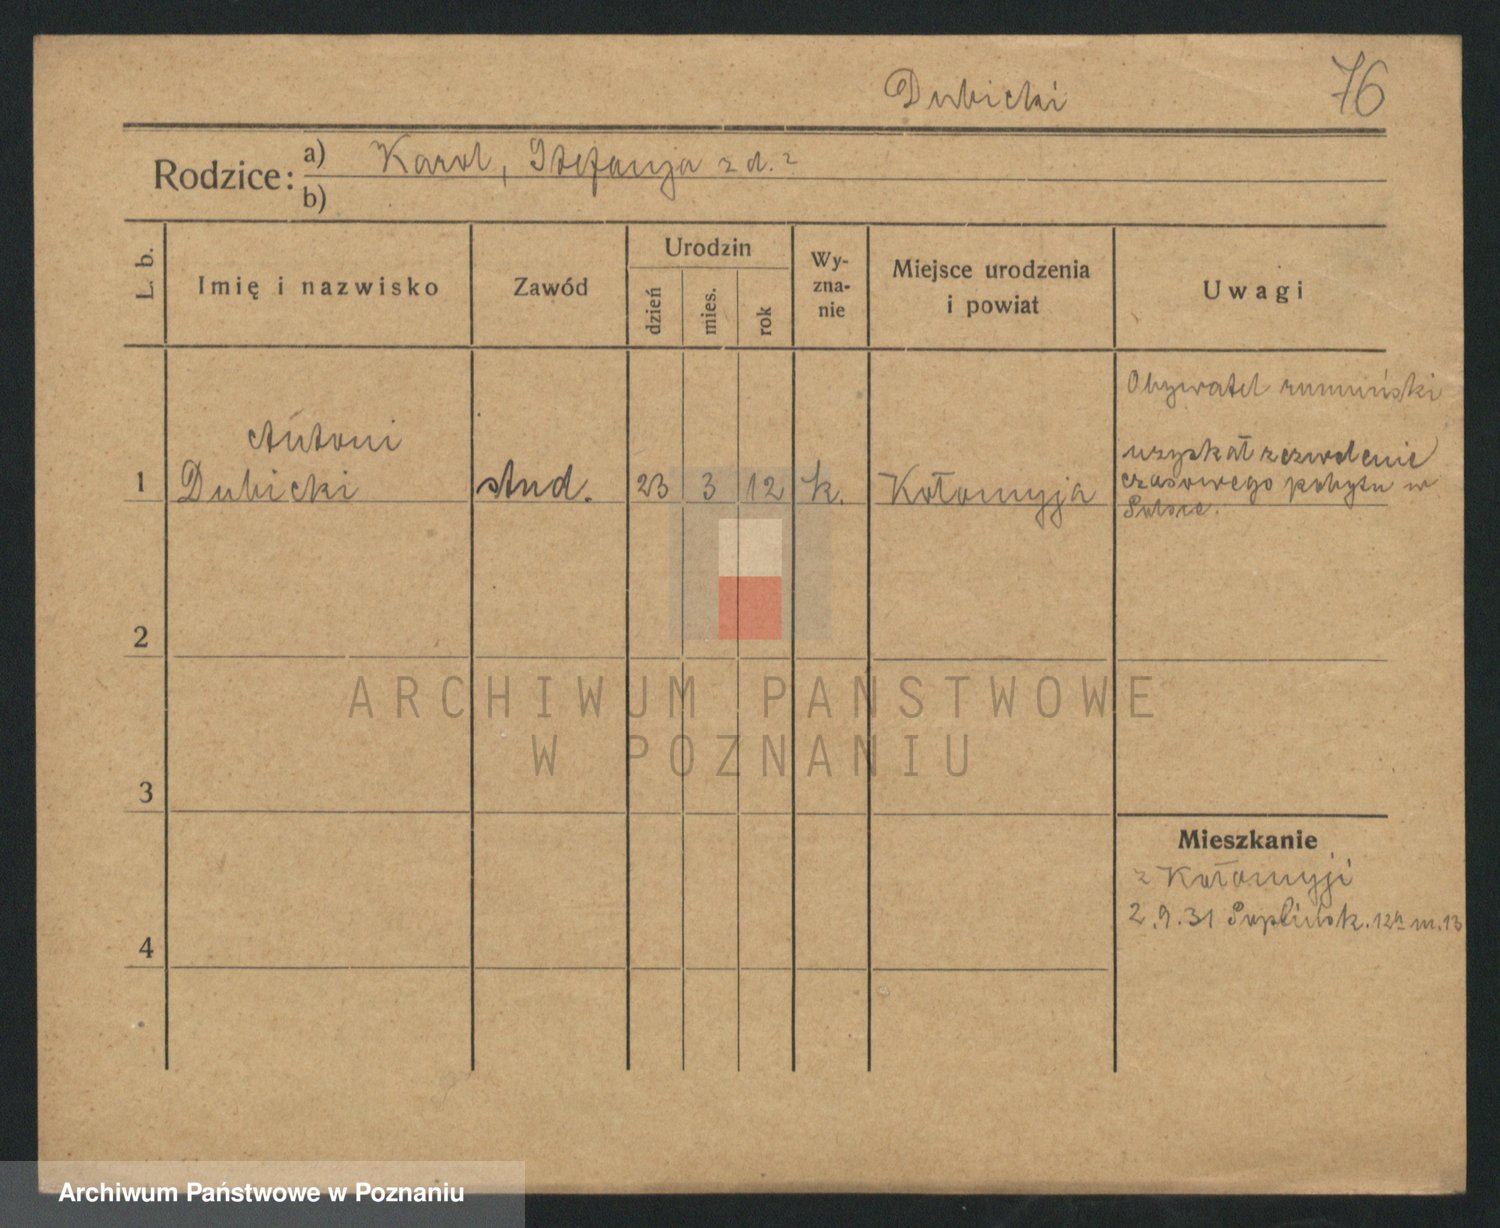 Dubicki
76
Rodzice:
a) Karol, Stefanja z d. ?
b)
L. b.
Imię i nazwisko
Zawód
Urodzin
dzień
mies.
rok
Wy-
zna-
nie
Miejsce urodzenia
i powiat
Uwagi
Obywatel rumuński
uzyskał zezwolenie
czasowego pobytu w
Polsce.
Antoni
1 Dubicki stud. 23 3 12 k. Kołomyja
2
3
4
Mieszkanie
z Kołomyji
2.9.31 m. 13
ARCHIWUM PAŃSTWOWE
W POZNANIU
Archiwum Państwowe w Poznaniu